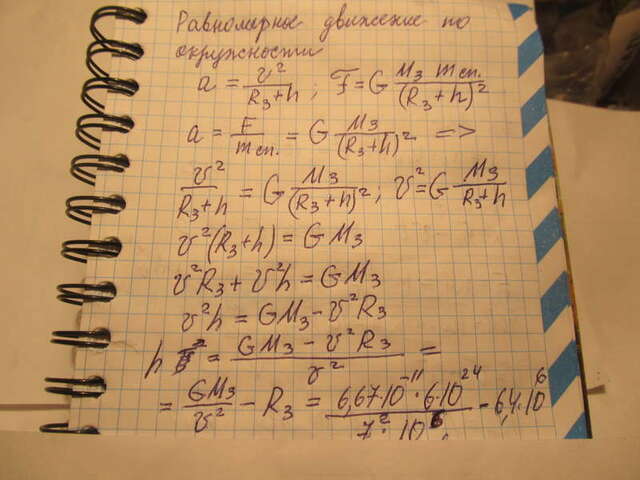 Равномерное движение по
окружности
a = v²/(R₃+h) ; F = G M₃ mсп./(R₃+h)²
a = F/mсп. = G M₃/(R₃+h)² =>
v²/(R₃+h) = G M₃/(R₃+h)² ; v² = G M₃/(R₃+h)
v²(R₃+h) = GM₃
v²R₃ + v²h = GM₃
v²h = GM₃ - v²R₃
h = (GM₃ - v²R₃)/v² =
= GM₃/v² - R₃ = (6,67·10⁻¹¹ · 6·10²⁴)/(7²·10⁶) - 6,4·10⁶